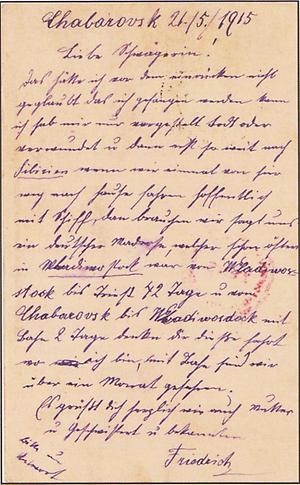 Chabarovsk 21./5./1915
Liebe Schwägerin!
Das hätte ich vor dem einrücken nicht
geglaubt das ich gefangen werden kann
ich hab mir nur vorgestellt Todt oder
verwundet u dann erst so weit nach
Sibirien wenn wir einmal von hier
weg nach hause fahren hoffentlich
mit Schiff, dann brauchen wir sagt uns
ein deutscher Matrose welcher schon öfters
in Wladiwostock war von Wladiwos-
stock bis Triest 42 Tage u von
Chabarovsk bis Wladiwosdock mit
Bahn 2 Tage denke dir diese fahrt
wo ich bin, mit Bahn sind wir
über ein Monat gefahren.
Es grüßt dich herzlich wie auch Mutter
u Geschwistert u bekannten
Friedrich
bitte um
Antwort